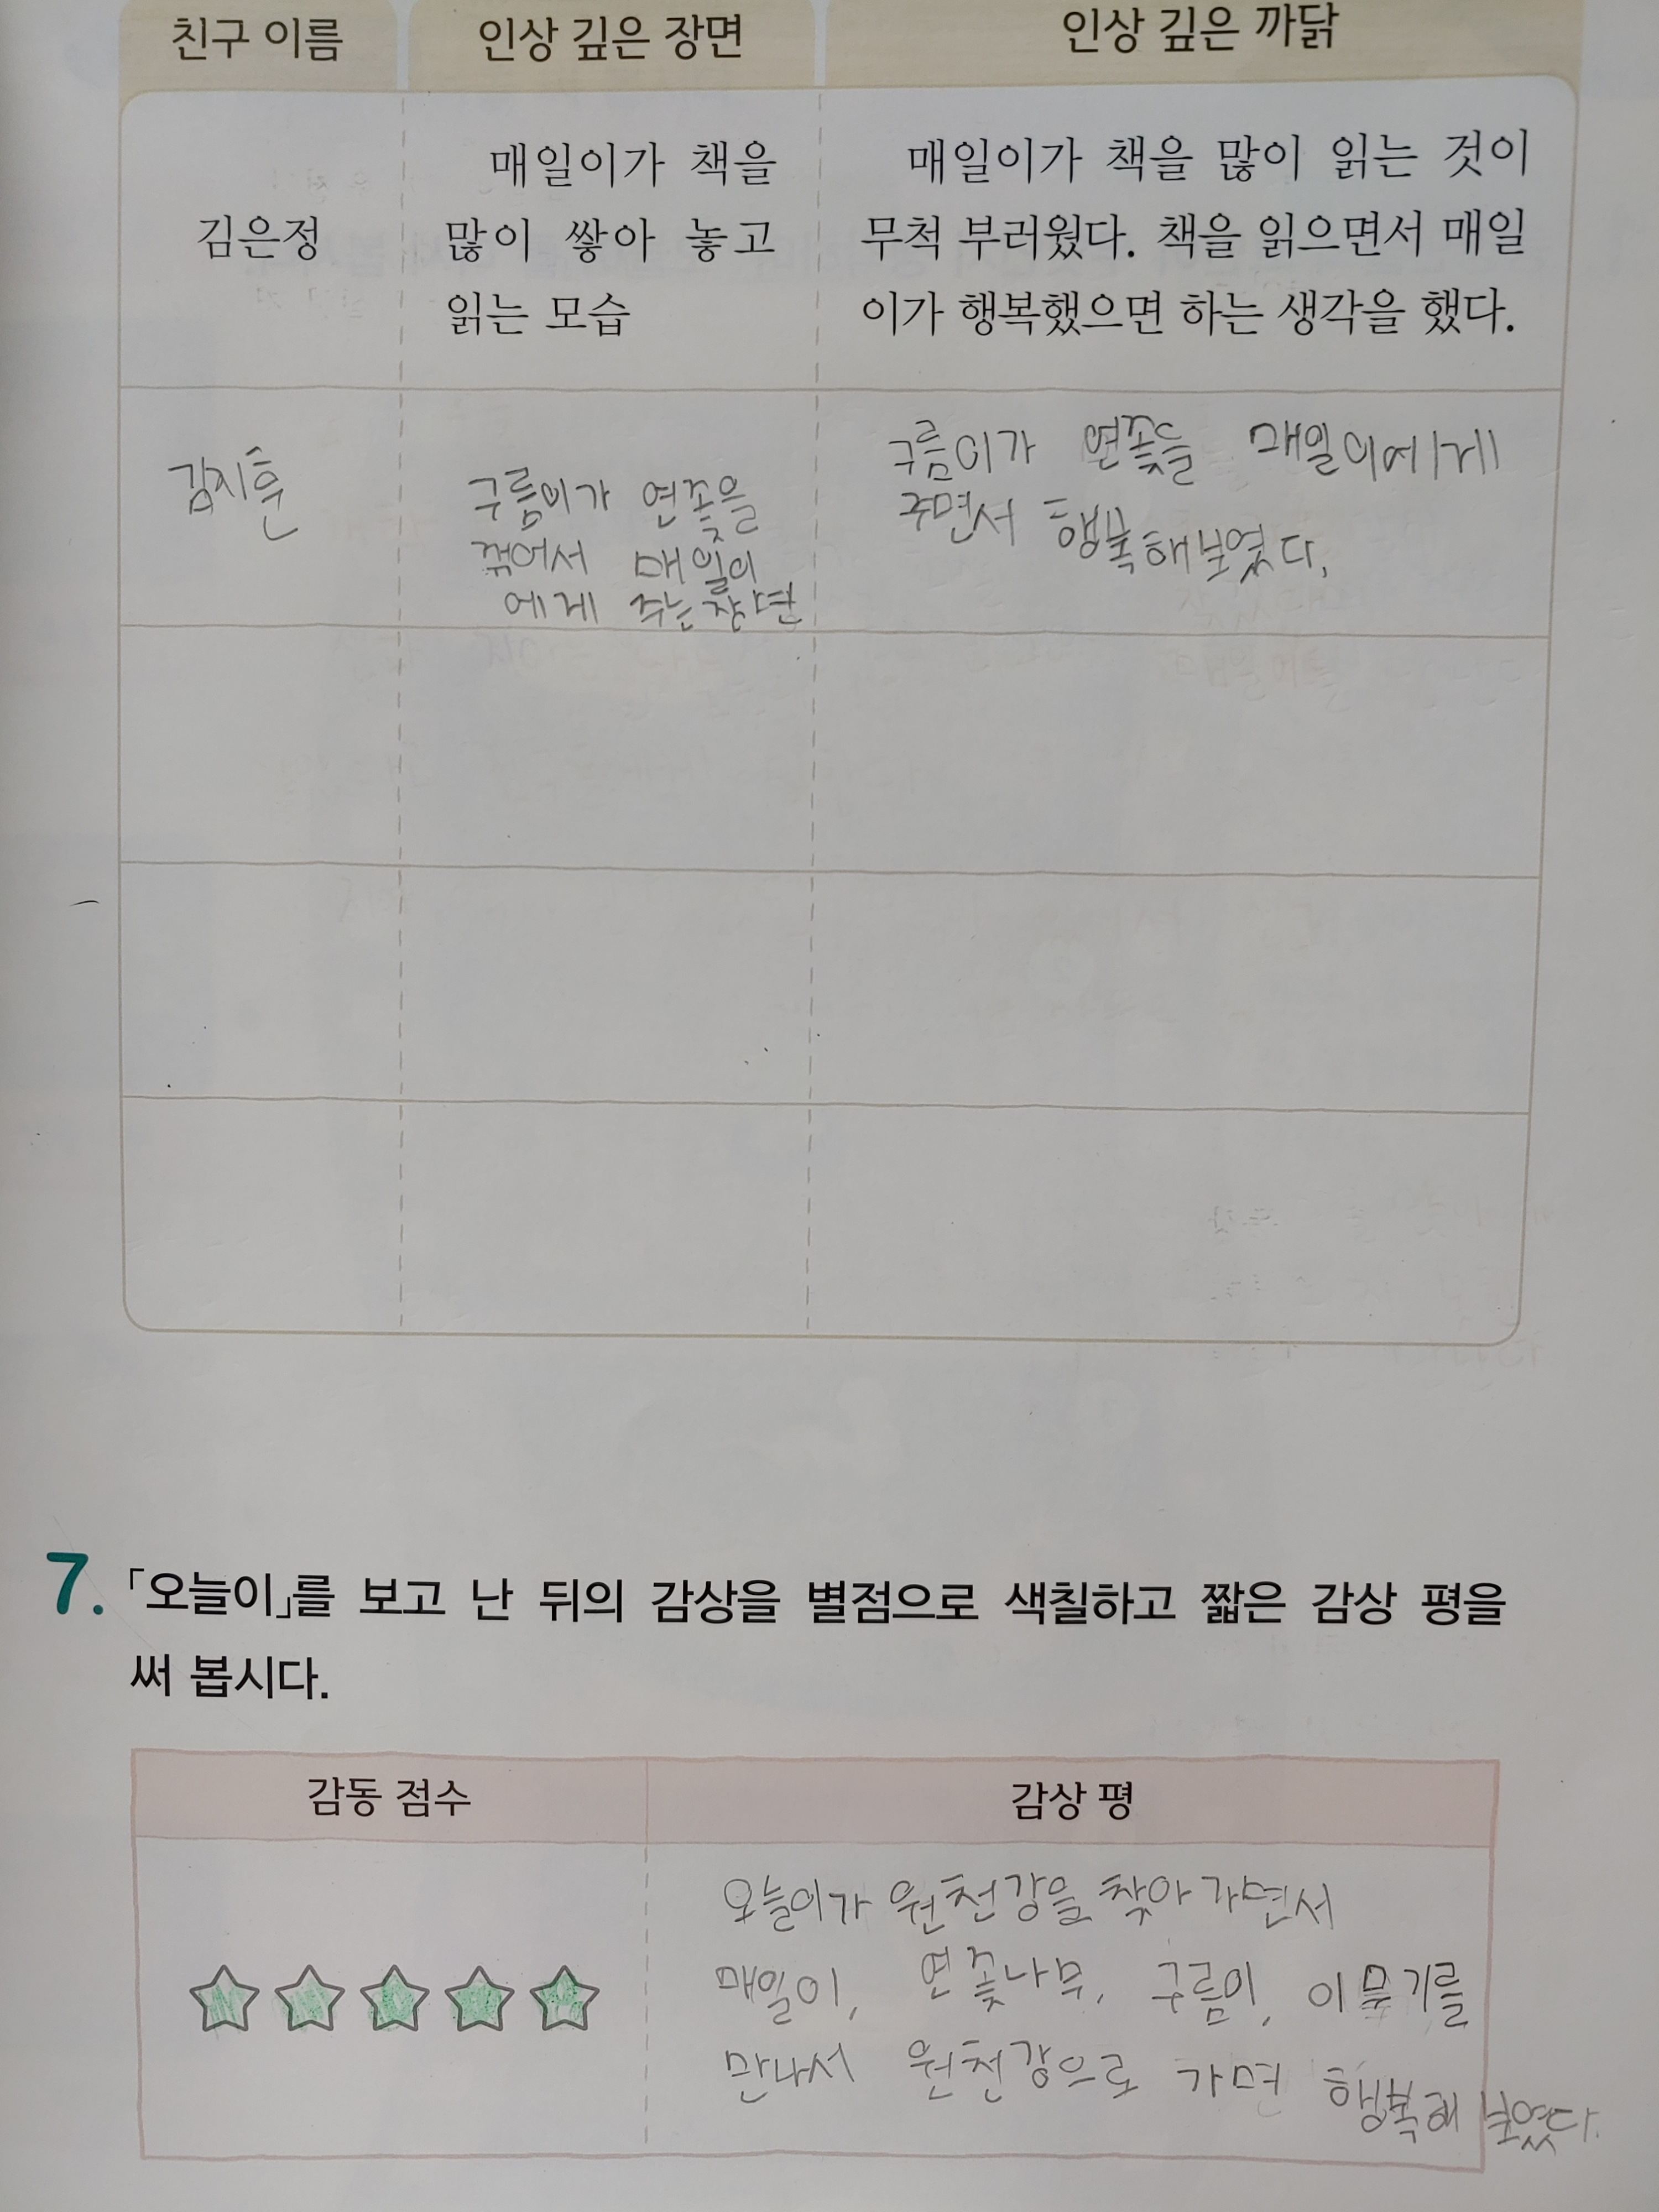 친구 이름 인상 깊은 장면 인상 깊은 까닭
김은정
매일이가 책을
많이 쌓아 놓고
읽는 모습
매일이가 책을 많이 읽는 것이
무척 부러웠다. 책을 읽으면서 매일
이가 행복했으면 하는 생각을 했다.
김지훈
구름이가 연꽃을
꺾어서 매일이
에게 주는 장면
구름이가 연꽃을 매일이에게
주면서 행복해보였다.
7. 「오늘이」를 보고 난 뒤의 감상을 별점으로 색칠하고 짧은 감상 평을
써 봅시다.
감동 점수 감상 평
오늘이가 원천강을 찾아가면서
매일이, 연꽃나무, 구름이, 이무기를
만나서 원천강으로 가면 행복해 보였다.